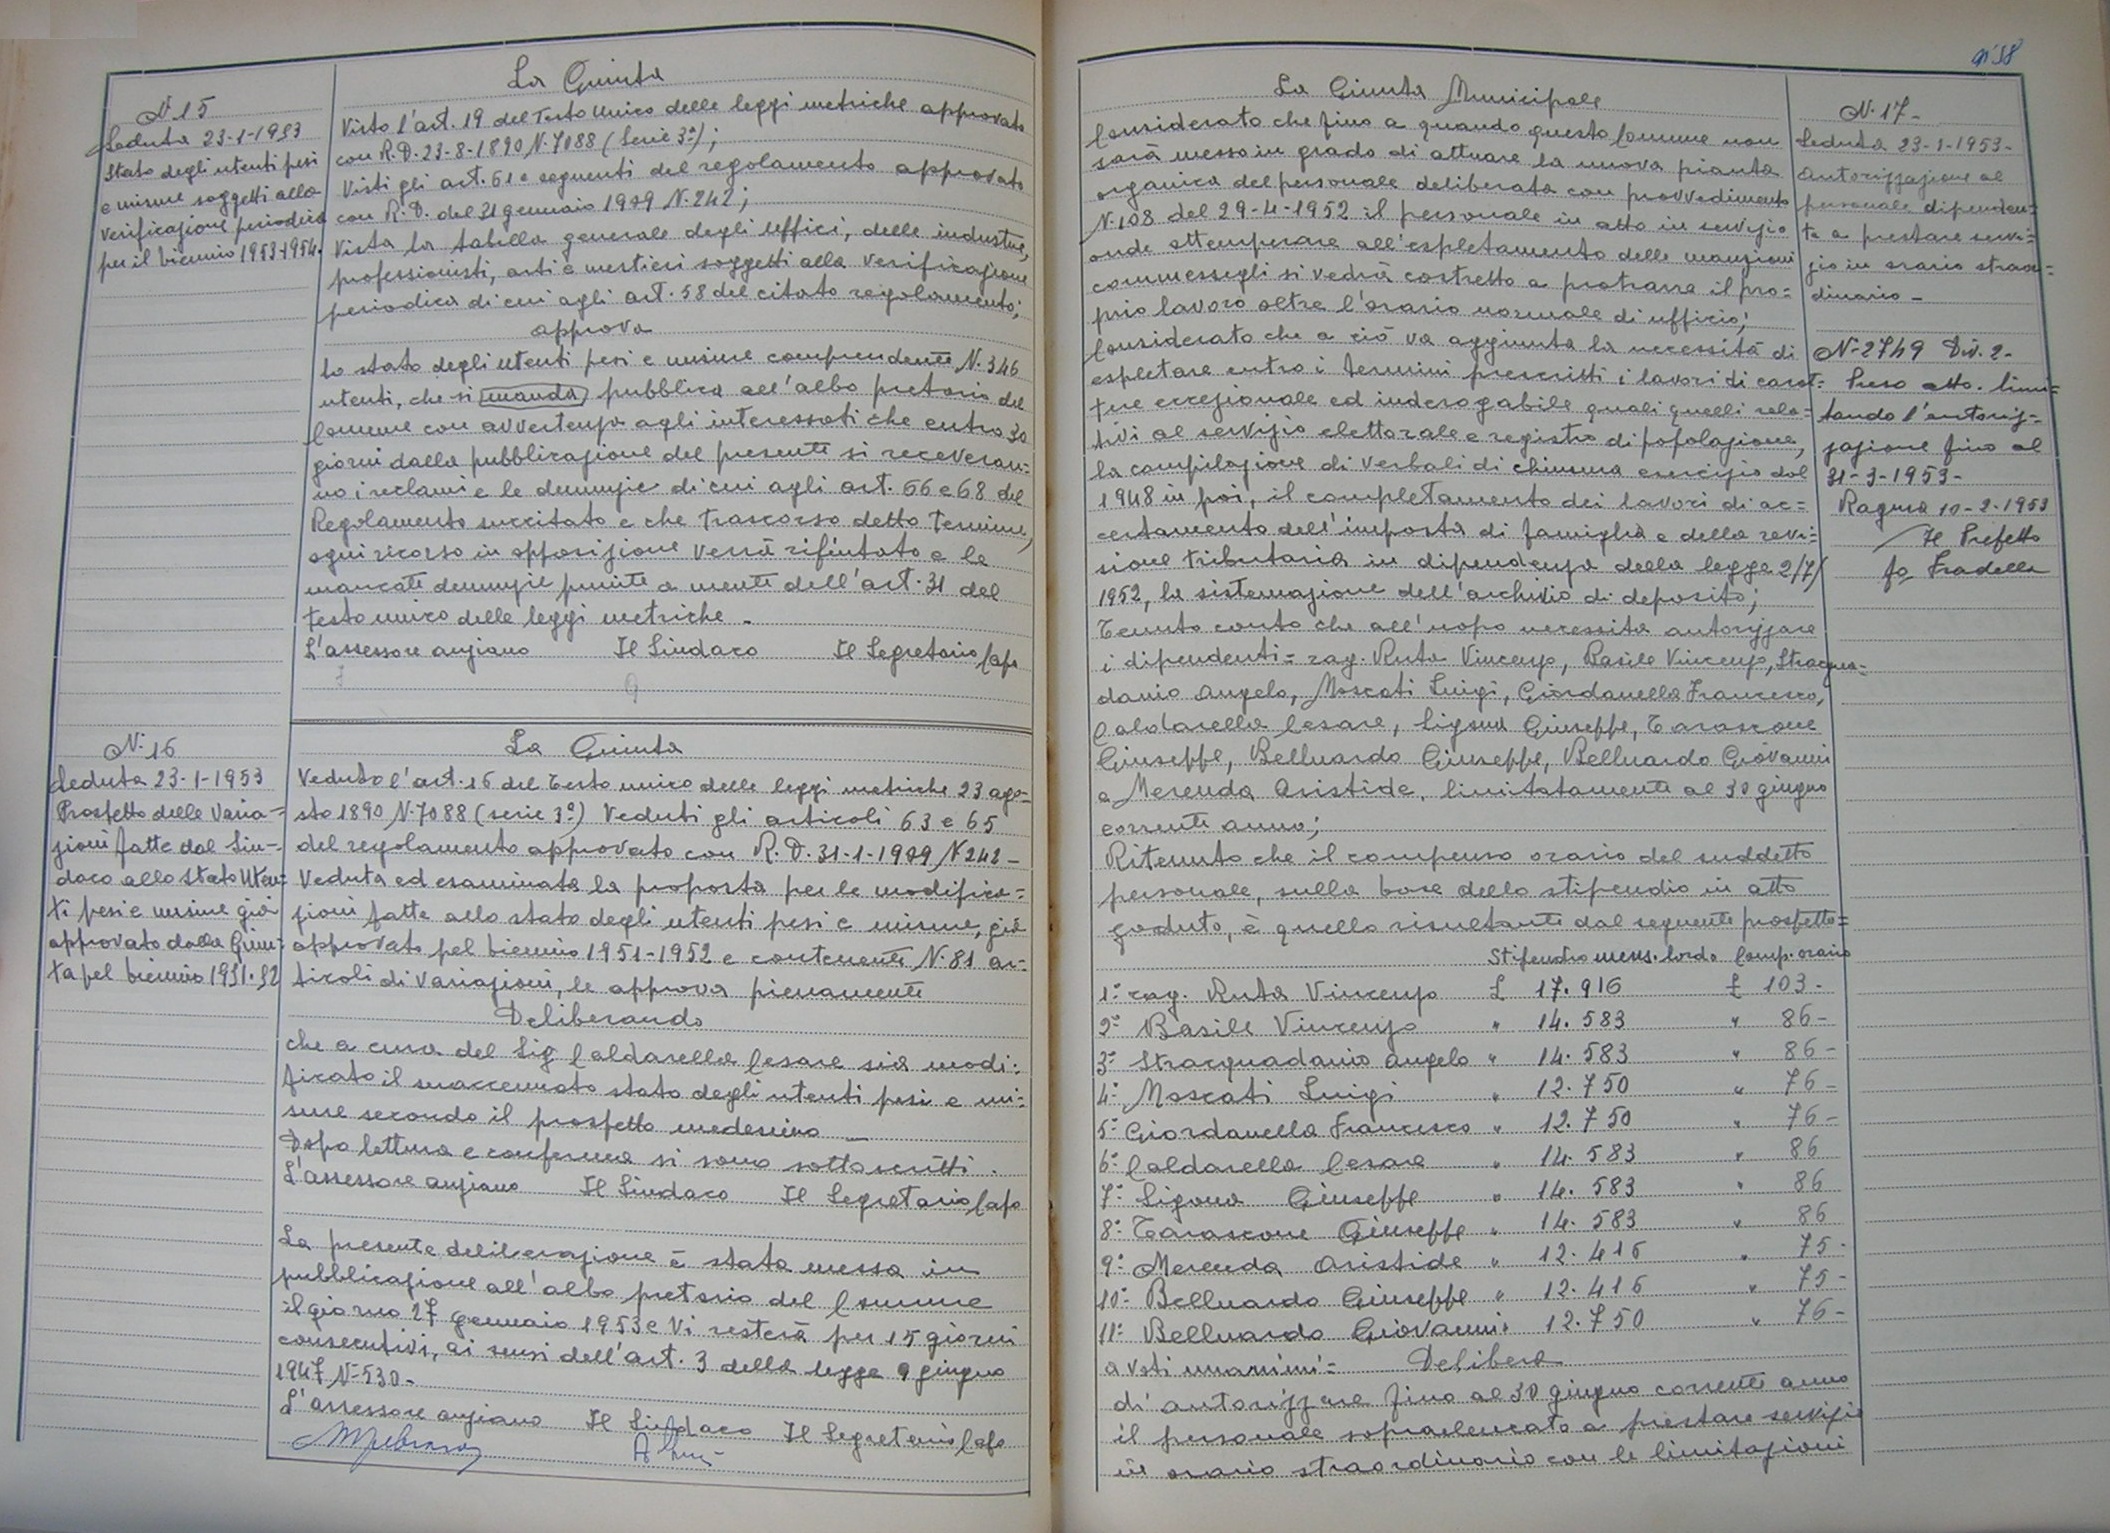 N. 15
Seduta 23-1-1953
Stato degli utenti pesi
e misure soggetti alla
verificazione periodica
per il biennio 1953-1954.
La Giunta
Visto l'art. 19 del Testo Unico delle leggi metriche approvato
con R.D. 23-8-1890 N. 7088 (Serie 3ª);
Visti gli art. 61 e seguenti del regolamento approvato
con R.D. del 31 gennaio 1909 N. 242;
Vista la tabella generale degli Uffici, delle industrie,
professionisti, arti e mestieri soggetti alla verificazione
periodica di cui agli art. 58 del citato regolamento;
approva
lo stato degli utenti pesi e misure comprendente N. 346
utenti, che si manda pubblica all'albo pretorio del
Comune con avvertenza agli interessati che entro 30
giorni dalla pubblicazione del presente si riceveran=
no i reclami e le denunzie di cui agli art. 66 e 68 del
Regolamento succitato e che trascorso detto termine,
ogni ricorso in opposizione verrà rifiutato e le
mancate denunzie punite a mente dell'art. 31 del
testo unico delle leggi metriche.
L'assessore anziano Il Sindaco Il Segretario Capo
N. 16
Seduta 23-1-1953
Prospetto delle varia=
zioni fatte dal Sin=
daco allo stato Uten=
ti pesi e misure già
approvato dalla Giun=
ta pel biennio 1951-52
La Giunta
Veduto l'art. 16 del Testo unico delle leggi metriche 23 ago=
sto 1890 N. 7088 (serie 3ª) Veduti gli articoli 63 e 65
del regolamento approvato con R.D. 31-1-1909 N 242 -
Veduta ed esaminata la proposta per le modifica=
zioni fatte allo stato degli utenti pesi e misure, già
approvato pel biennio 1951-1952 e contenente N. 81 ar=
ticoli di variazioni, le approva pienamente
Deliberando
che a cura del Sig Caldarella Cesare sia modi=
ficato il suaccennato stato degli utenti pesi e mi=
sure secondo il prospetto medesimo -
Dopo lettura e conferma si sono sottoscritti.
L'assessore anziano Il Sindaco Il Segretario Capo
La presente deliberazione è stata messa in
pubblicazione all'albo pretorio del Comune
il giorno 27 gennaio 1953 e vi resterà per 15 giorni
consecutivi, ai sensi dell'art. 3 della legge 9 giugno
1947 N-530-
L'assessore anziano Il Sindaco Il Segretario Capo
La Giunta Municipale
Considerato che fino a quando questo Comune non
sarà messo in grado di attuare la nuova pianta
organica del personale deliberata con provvedimento
N. 108 del 29-4-1952 il personale in atto in servizio
onde ottemperare all'espletamento delle mansioni
commessegli si vedrà costretto a protrarre il pro=
prio lavoro oltre l'orario normale di ufficio;
Considerato che a ciò va aggiunta la necessità di
espletare entro i termini prescritti i lavori di carat=
tere eccezionale ed inderogabile quali quelli rela=
tivi al servizio elettorale e registro di popolazione,
la compilazione di verbali di chiusura esercizio dal
1948 in poi, il completamento dei lavori di ac=
certamento dell'imposta di famiglia e della revi=
sione tributaria in dipendenza della legge 2/7/
1952, la sistemazione dell'archivio di deposito;
Tenuto conto che all'uopo necessita autorizzare
i dipendenti= rag. Ruta Vincenzo, Basile Vincenzo, Stracqua=
danio Angelo, Moscati Luigi, Giordanella Francesco,
Caldarella Cesare, Sigona Giuseppe, Tarascone
Giuseppe, Belluardo Giuseppe, Belluardo Giovanni
e Merenda Aristide, limitatamente al 30 giugno
corrente anno;
Ritenuto che il compenso orario del suddetto
personale, sulla base dello stipendio in atto
goduto, è quello risultante dal seguente prospetto=
Stipendio mens. lordo Comp. orario
1º rag. Ruta Vincenzo £ 17.916 £ 103-
2º Basile Vincenzo " 14.583 " 86-
3º Stracquadanio Angelo " 14.583 " 86-
4º Moscati Luigi " 12.750 " 76-
5º Giordanella Francesco " 12.750 " 76-
6º Caldarella Cesare " 14.583 " 86
7º Sigona Giuseppe " 14.583 " 86
8º Tarascone Giuseppe " 14.583 " 86
9º Merenda Aristide " 12.416 " 75-
10º Belluardo Giuseppe " 12.416 " 75-
11º Belluardo Giovanni " 12.750 " 76-
a voti unanimi= Delibera
di autorizzare fino al 30 giugno corrente anno
il personale sopraelencato a prestare servizio
in orario straordinario con le limitazioni
N. 17-
Seduta 23-1-1953-
Autorizzazione al
personale dipenden=
te a prestare servi=
zio in orario straor=
dinario-
N-2749 Div. 2-
Preso atto. limi=
tando l'autoriz=
zazione fino al
31-3-1953-
Ragusa 10-2-1953
Il Prefetto
fo Fradella